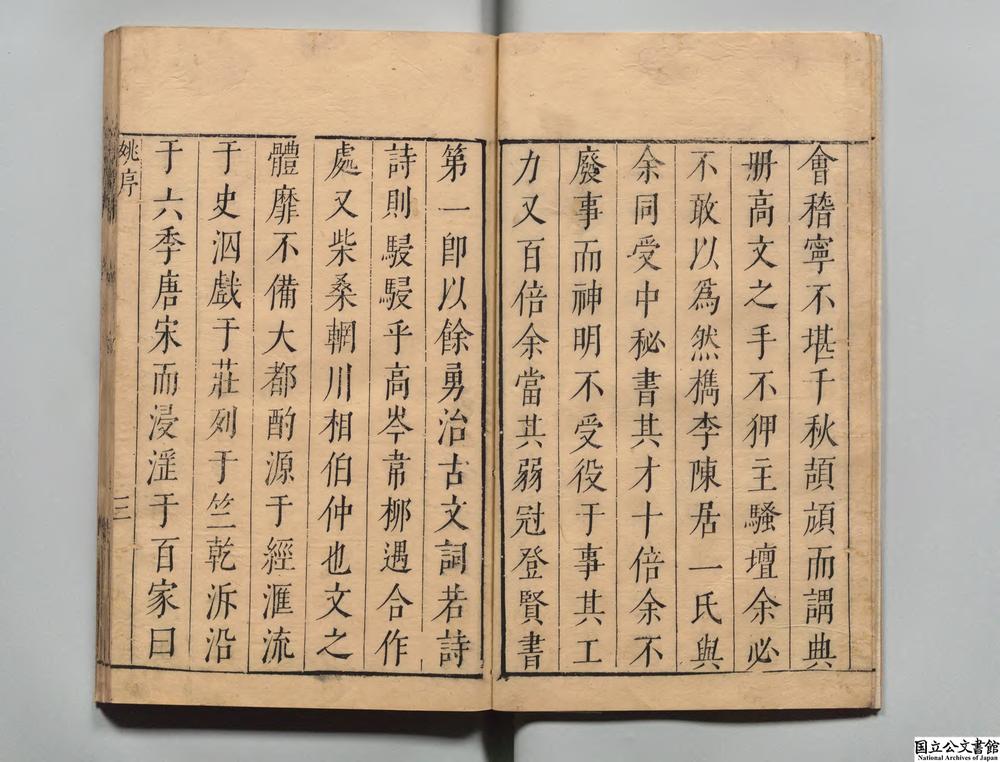 會稽寧不堪千秋頡頏而謂典
册高文之手不狎主騷壇余必
不敢以為然檇李陳居一氏與
余同受中秘書其才十倍余不
廢事而神明不受役于事其工
力又百倍余當其弱冠登賢書
第一卽以餘勇治古文詞若詩
詩則駸駸乎高岑韋柳遇合作
處又柴桑輞川相伯仲也文之
體靡不備大都酌源于經滙流
于史泅戲于莊列于竺乾泝沿
于六季唐宋而浸淫于百家曰
姚序
三
国立公文書館
National Archives of Japan